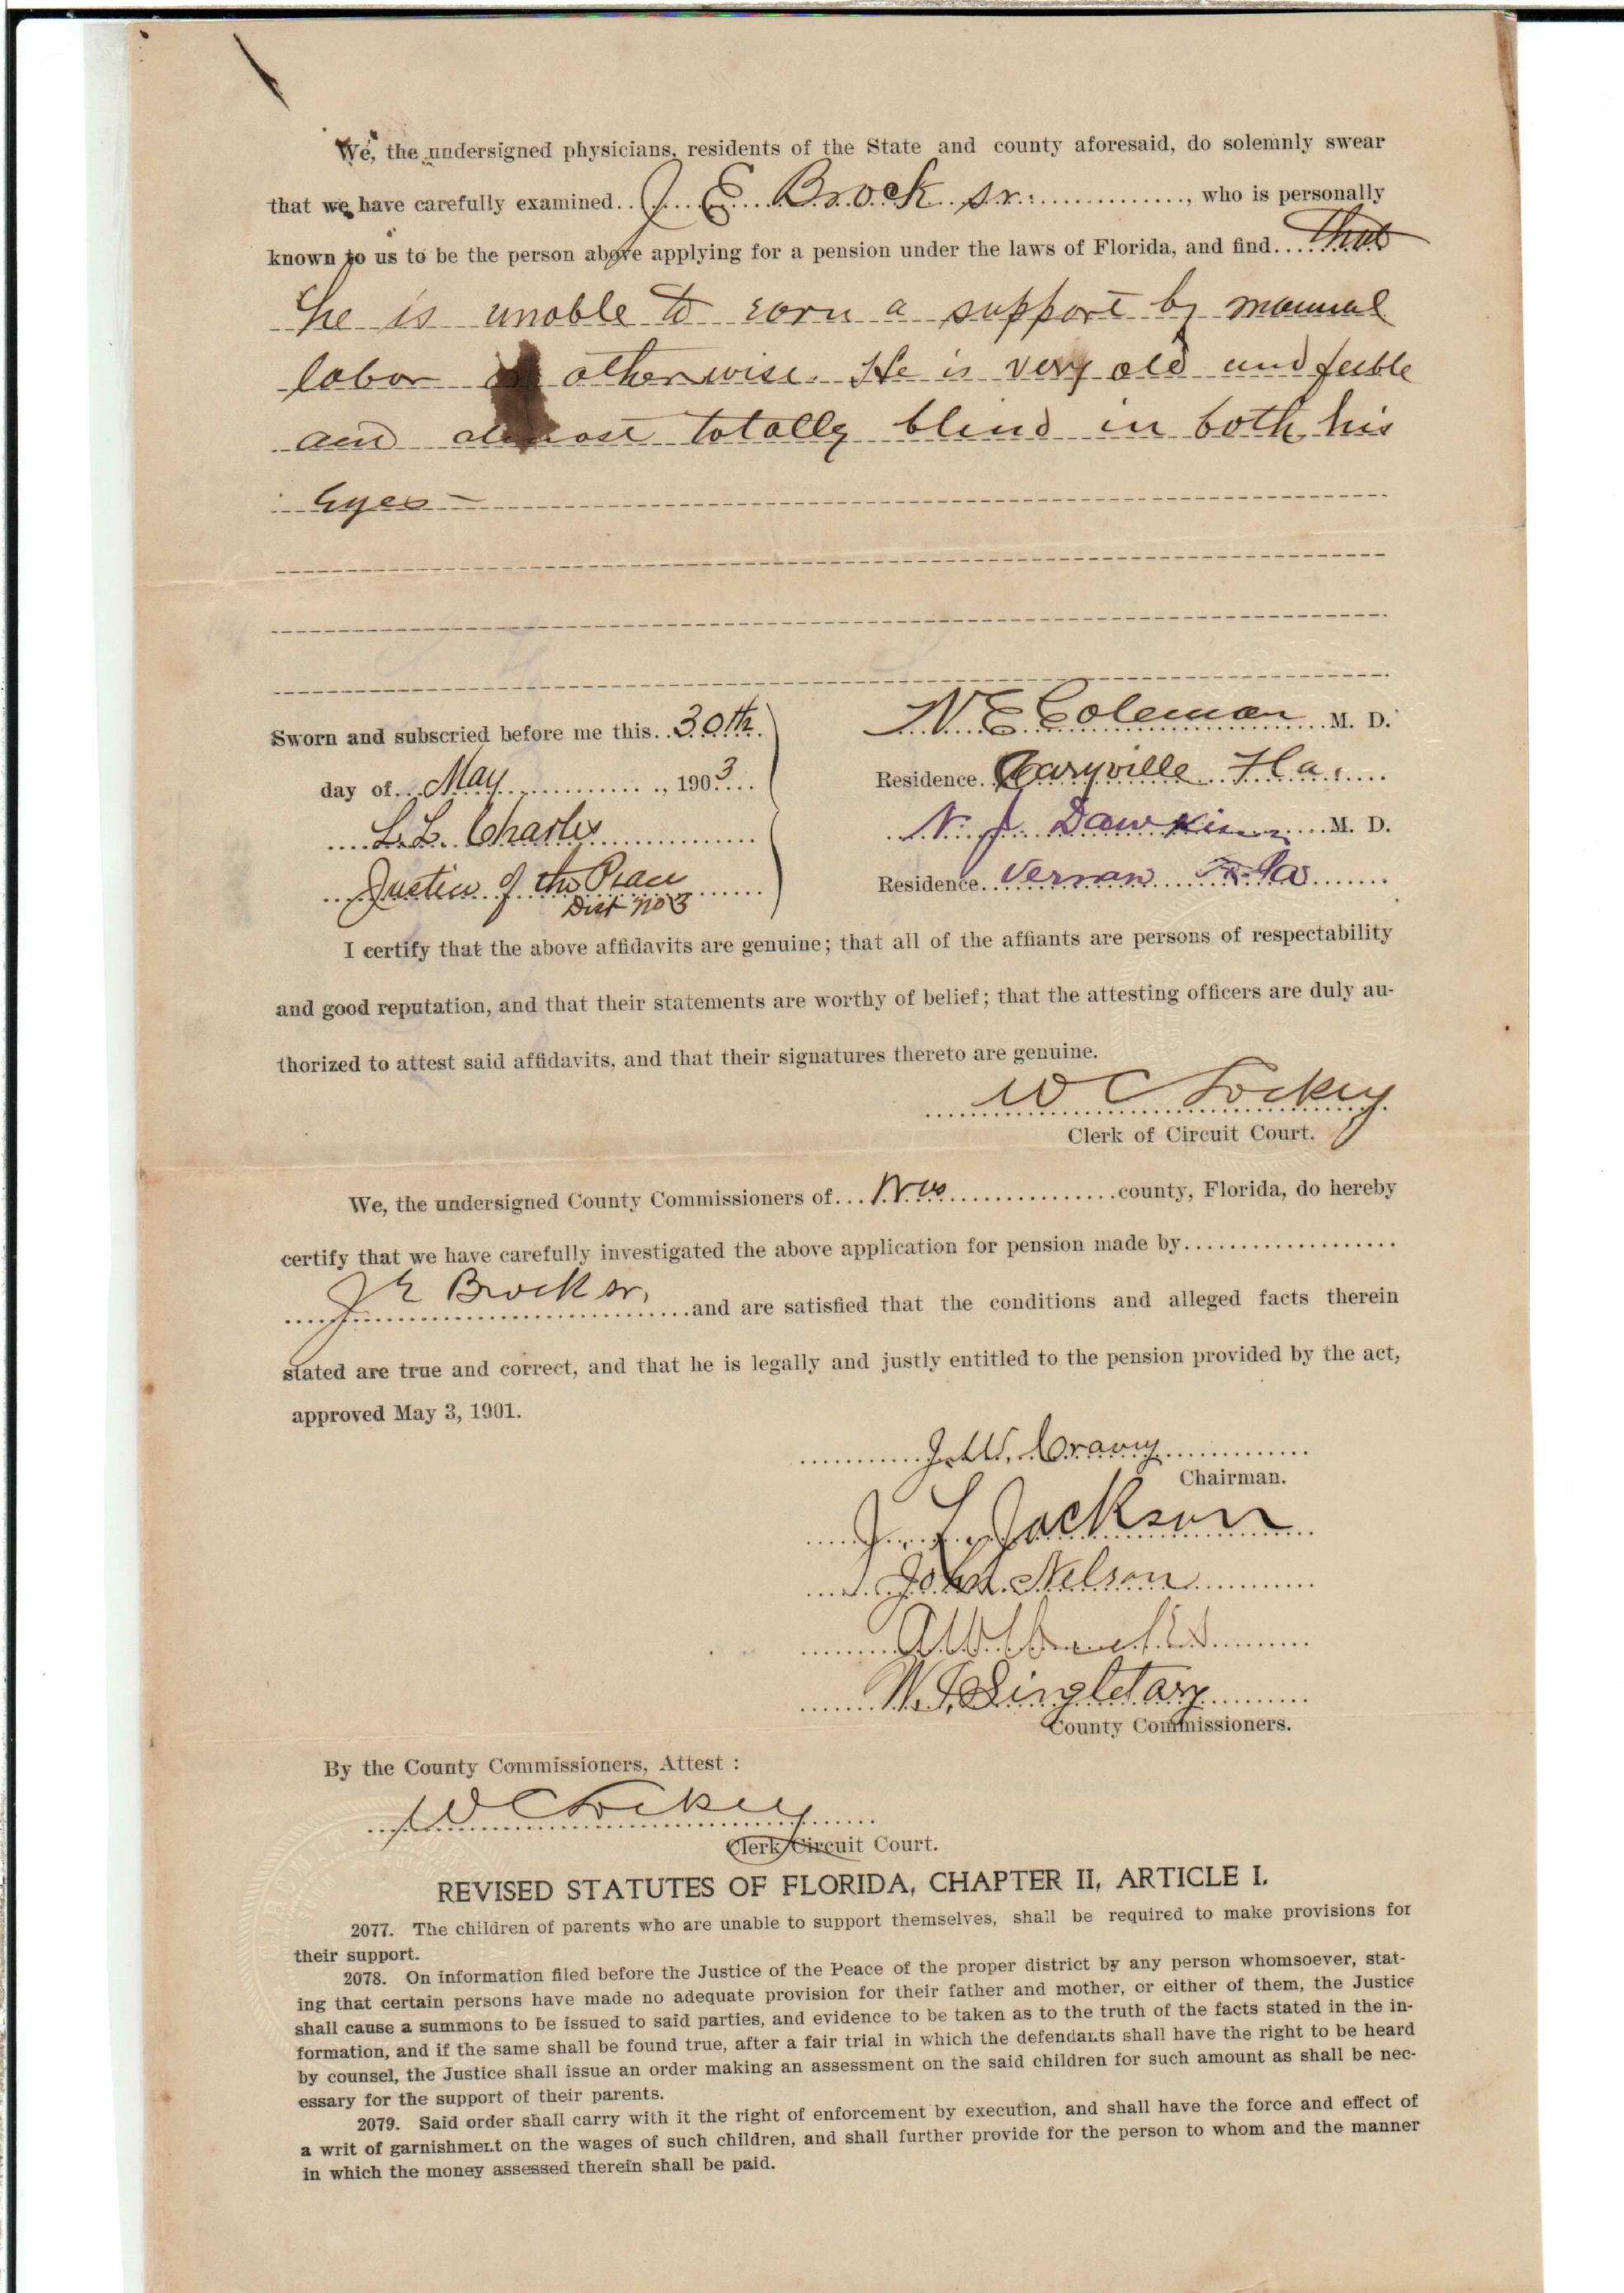 We, the undersigned physicians, residents of the State and county aforesaid, do solemnly swear
that we have carefully examined J. E. Brock Sr., who is personally
known to us to be the person above applying for a pension under the laws of Florida, and find that
he is unable to earn a support by manual
labor otherwise. He is very old and feeble
and almost totally blind in both his
Eyes –
Sworn and subscried before me this 30th
day of May, 1903
L. L. Charles
Justice of the Peace
Dist No 3
N E Coleman M. D.
Residence Caryville Fla.
N. J. Dawkins M. D.
Residence Vernon Fla
I certify that the above affidavits are genuine; that all of the affiants are persons of respectability
and good reputation, and that their statements are worthy of belief; that the attesting officers are duly au-
thorized to attest said affidavits, and that their signatures thereto are genuine.
W C Lockey
Clerk of Circuit Court.
We, the undersigned County Commissioners of county, Florida, do hereby
certify that we have carefully investigated the above application for pension made by
J E Brock Sr. and are satisfied that the conditions and alleged facts therein
stated are true and correct, and that he is legally and justly entitled to the pension provided by the act,
approved May 3, 1901.
J. W. Cravey
Chairman.
J. L. Jackson
John Nelson
W. J. Singletary
County Commissioners.
By the County Commissioners, Attest :
W C Lockey
Clerk Circuit Court.
REVISED STATUTES OF FLORIDA, CHAPTER II, ARTICLE I.
2077. The children of parents who are unable to support themselves, shall be required to make provisions for
their support.
2078. On information filed before the Justice of the Peace of the proper district by any person whomsoever, stat-
ing that certain persons have made no adequate provision for their father and mother, or either of them, the Justice
shall cause a summons to be issued to said parties, and evidence to be taken as to the truth of the facts stated in the in-
formation, and if the same shall be found true, after a fair trial in which the defendants shall have the right to be heard
by counsel, the Justice shall issue an order making an assessment on the said children for such amount as shall be nec-
essary for the support of their parents.
2079. Said order shall carry with it the right of enforcement by execution, and shall have the force and effect of
a writ of garnishment on the wages of such children, and shall further provide for the person to whom and the manner
in which the money assessed therein shall be paid.